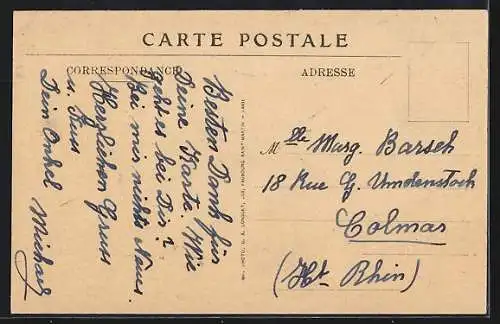 CARTE POSTALE
CORRESPONDANCE
ADRESSE
Besten Dank für
Deine Karte. Wie
geht es bei Dir?
Bei mir nichts Neues.
Herzlichen Gruss
u. Kuss
Dein Onkel Michael
Mlle Marg. Barsch
18 Rue G. Umdenstock
Colmar
(Ht Rhin)